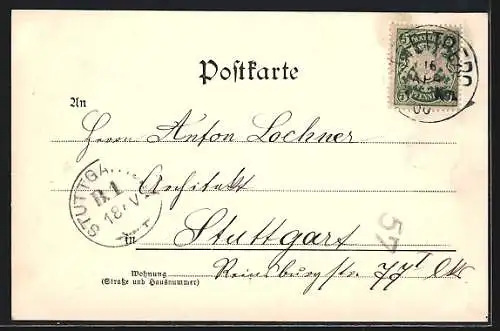 Postkarte
An
Herrn Anton Lochner
Architekt
in Stuttgart
Wohnung
(Straße und Hausnummer)
Reinsburgstr. 77
STUTTGA
B 1
18
V
57
16
00
5